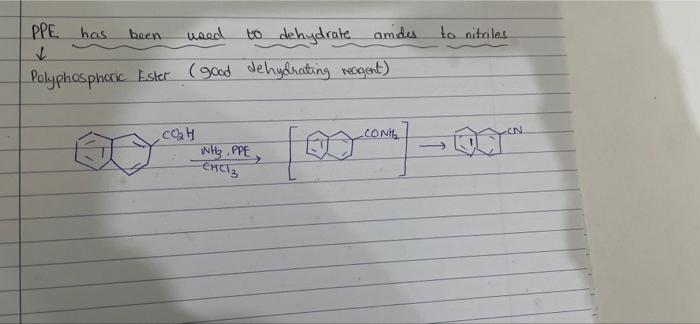 PPE has been used to dehydrate amides to nitriles
↓
Polyphosphoric Ester (good dehydrating reagent)
CO2H
NH3, PPE
CHCl3
CONH2
CN